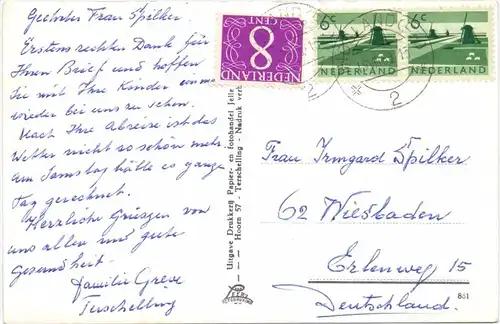 Geehrter Frau Spilker.
Erstens rechten Dank für
Ihren Brief und hoffen
Sie mit Ihre Kinder einmal
wieder bei uns zu sehen.
Nach Ihre Abreise ist das
Wetter nicht so schön mehr.
Am Samstag hätte es ganze
Tag geregnet.
Herzliche Grüszen von
uns allen und gute
Gesundheit.
Familie Greve
Terschelling
Uitgave Drukkerij Papier- en fotohandel Jelle
Hoorn 57 - Terschelling - Nadruk verb
NEDERLAND
8
CENT
6c
NEDERLAND
6c
NEDERLAND
2
Frau Irmgard Spilker
62 Wiesbaden
Erlenweg 15
Deutschland.
861